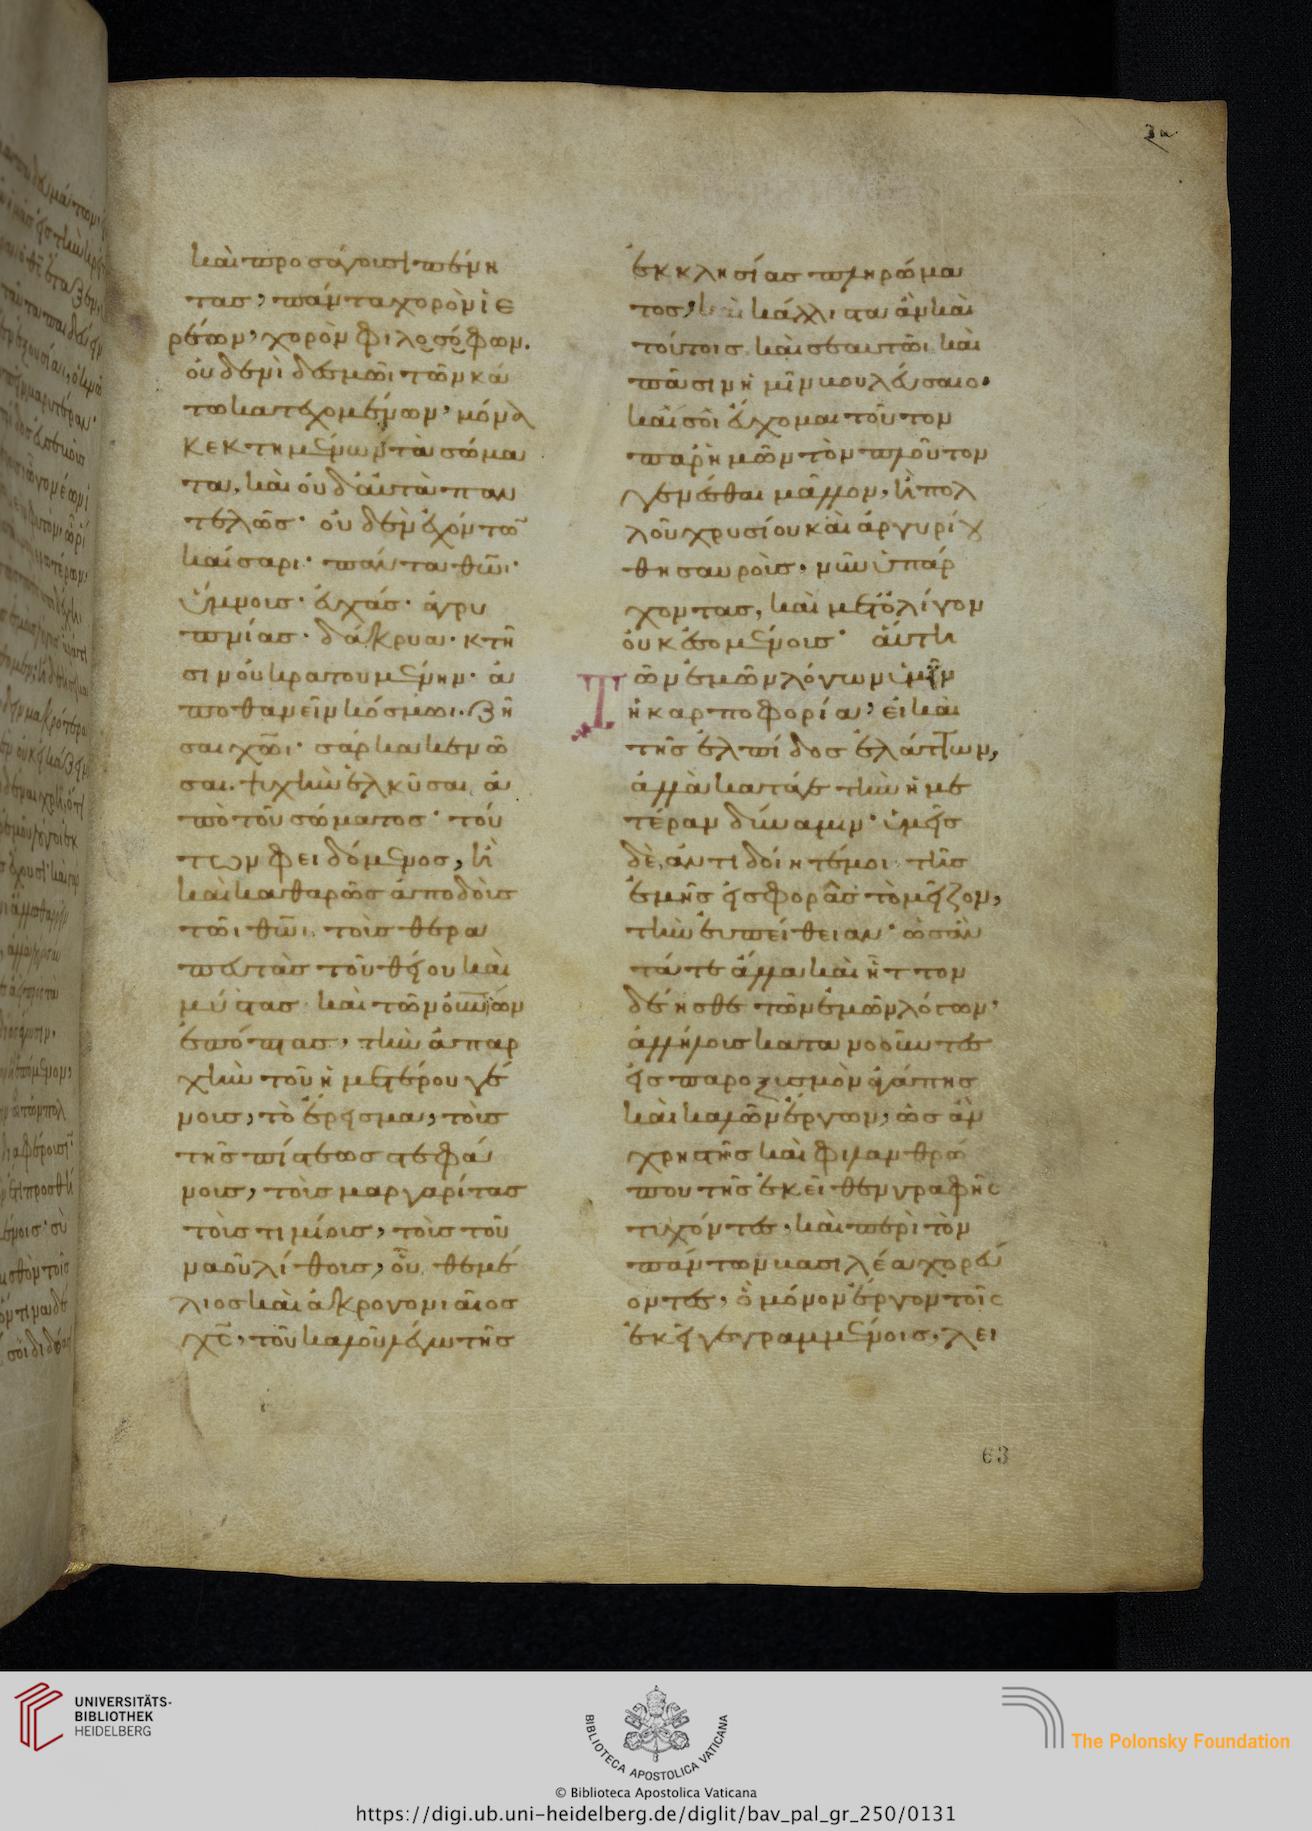 καὶ προσάγοις πένη
τας, πάντα χορὸν ἱε
ρέων, χορὸν φιλοσόφων.
οὐδενὶ δεσμῶι τῶν κά
τω κατεχομένων, μόνα
κεκτημένων τὰ σώμα
τα, καὶ οὐδ' αὐτὰ παν
τελῶς· οὐδὲν ἐχόντων
καίσαρι· πάντα θῶι·
ὕμνοις· εὐχάς· ἀγρυ
πνίας· δάκρυα· κτῆ
σιν οὐ κρατουμένην· ἀ
ποθανεῖν κόσμωι· ζῆ
σαι χῶι· σάρκα κενῶ
σαι· ψυχὴν ἑλκῦσαι ἀ
πὸ τοῦ σώματος· τού
των φειδόμενος, ἢ
καὶ καθαρῶς ἀποδοὺς
τῶι θῶι τοὺς θερα
πευτὰς τοῦ θείου καὶ
μύστας καὶ τῶν
ἐπόπτας, τὴν ἀπαρ
χὴν τοῦ ἡμετέρου γέ
νους, τὸ ἔρεισμα, τοὺς
τῆς πίστεως στεφά
νους, τοὺς μαργαρίτας
τοὺς τιμίους, τοὺς τοῦ
ναοῦ λίθους, οὗ θεμέ
λιος καὶ ἀκρογωνιαῖος
χς, τοῦ καλοῦ λέγω τῆς
ἐκκλησίας πληρώμα
τος, καὶ κάλλιστα ἂν καὶ
τούτοις καὶ σεαυτῶι καὶ
πᾶσιν ἡμῖν βουλεύσαιο·
καί σοι εὔχομαι τοῦτον
παρ' ἡμῶν τὸν πλοῦτον
γενέσθαι μᾶλλον, ἢ πολ
λοῦ χρυσίου καὶ ἀργυρίου
θησαυροὺς, νῦν ὑπάρ
χοντας, καὶ μετ' ὀλίγον
οὐκ ἐσομένους· αὕτη
τῶν ἐμῶν λόγων ὑμῖν
ἡ καρποφορία, εἰ καὶ
τῆς ἐλπίδος ἐλάττων,
ἀλλὰ κατά γε τὴν ἡμε
τέραν δύναμιν· ὑμεῖς
δὲ, ἀντιδοίητέ μοι τῆς
ἐμῆς εἰσφορᾶς τὸ μεῖζον,
τὴν εὐπείθειαν· ὡς ἂν
τά τε ἄλλα καὶ ἧττον
δέησθε τῶν ἐμῶν λόγων·
ἀλλήλους κατανοοῦντες
εἰς παροξισμὸν ἀγάπης
καὶ καλῶν ἔργων, ὡς ἂν
χρηστῆς καὶ φιλανθρώ
που τῆς ἐκεῖθεν γραφῆς
τυχόντες, καὶ περὶ τὸν
πάντων βασιλέα χορεύ
οντες, ὃ μόνον ἔργον τοῖς
ἐκεῖ γεγραμμένοις, λει
63
UNIVERSITÄTS-
BIBLIOTHEK
HEIDELBERG
BIBLIOTECA APOSTOLICA VATICANA
The Polonsky Foundation
© Biblioteca Apostolica Vaticana
https://digi.ub.uni-heidelberg.de/diglit/bav_pal_gr_250/0131